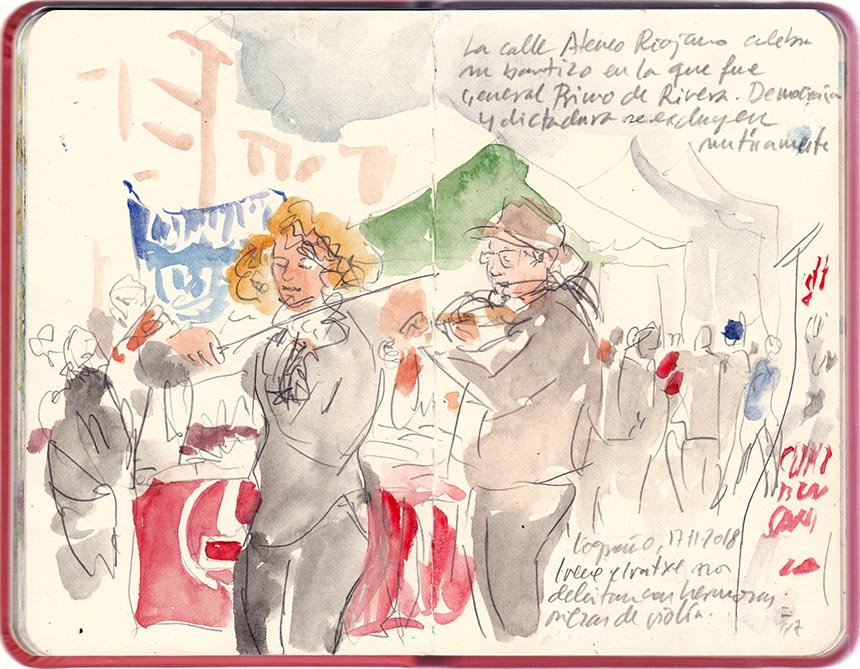 La calle Ateneo Riojano celebra
su bautizo en la que fue
General Primo de Rivera. Democracia
y dictadura se excluyen
mutuamente
Logroño, 17.11.2018
Irene y Iratxe, nos
deleitan con hermosas
piezas de violín.